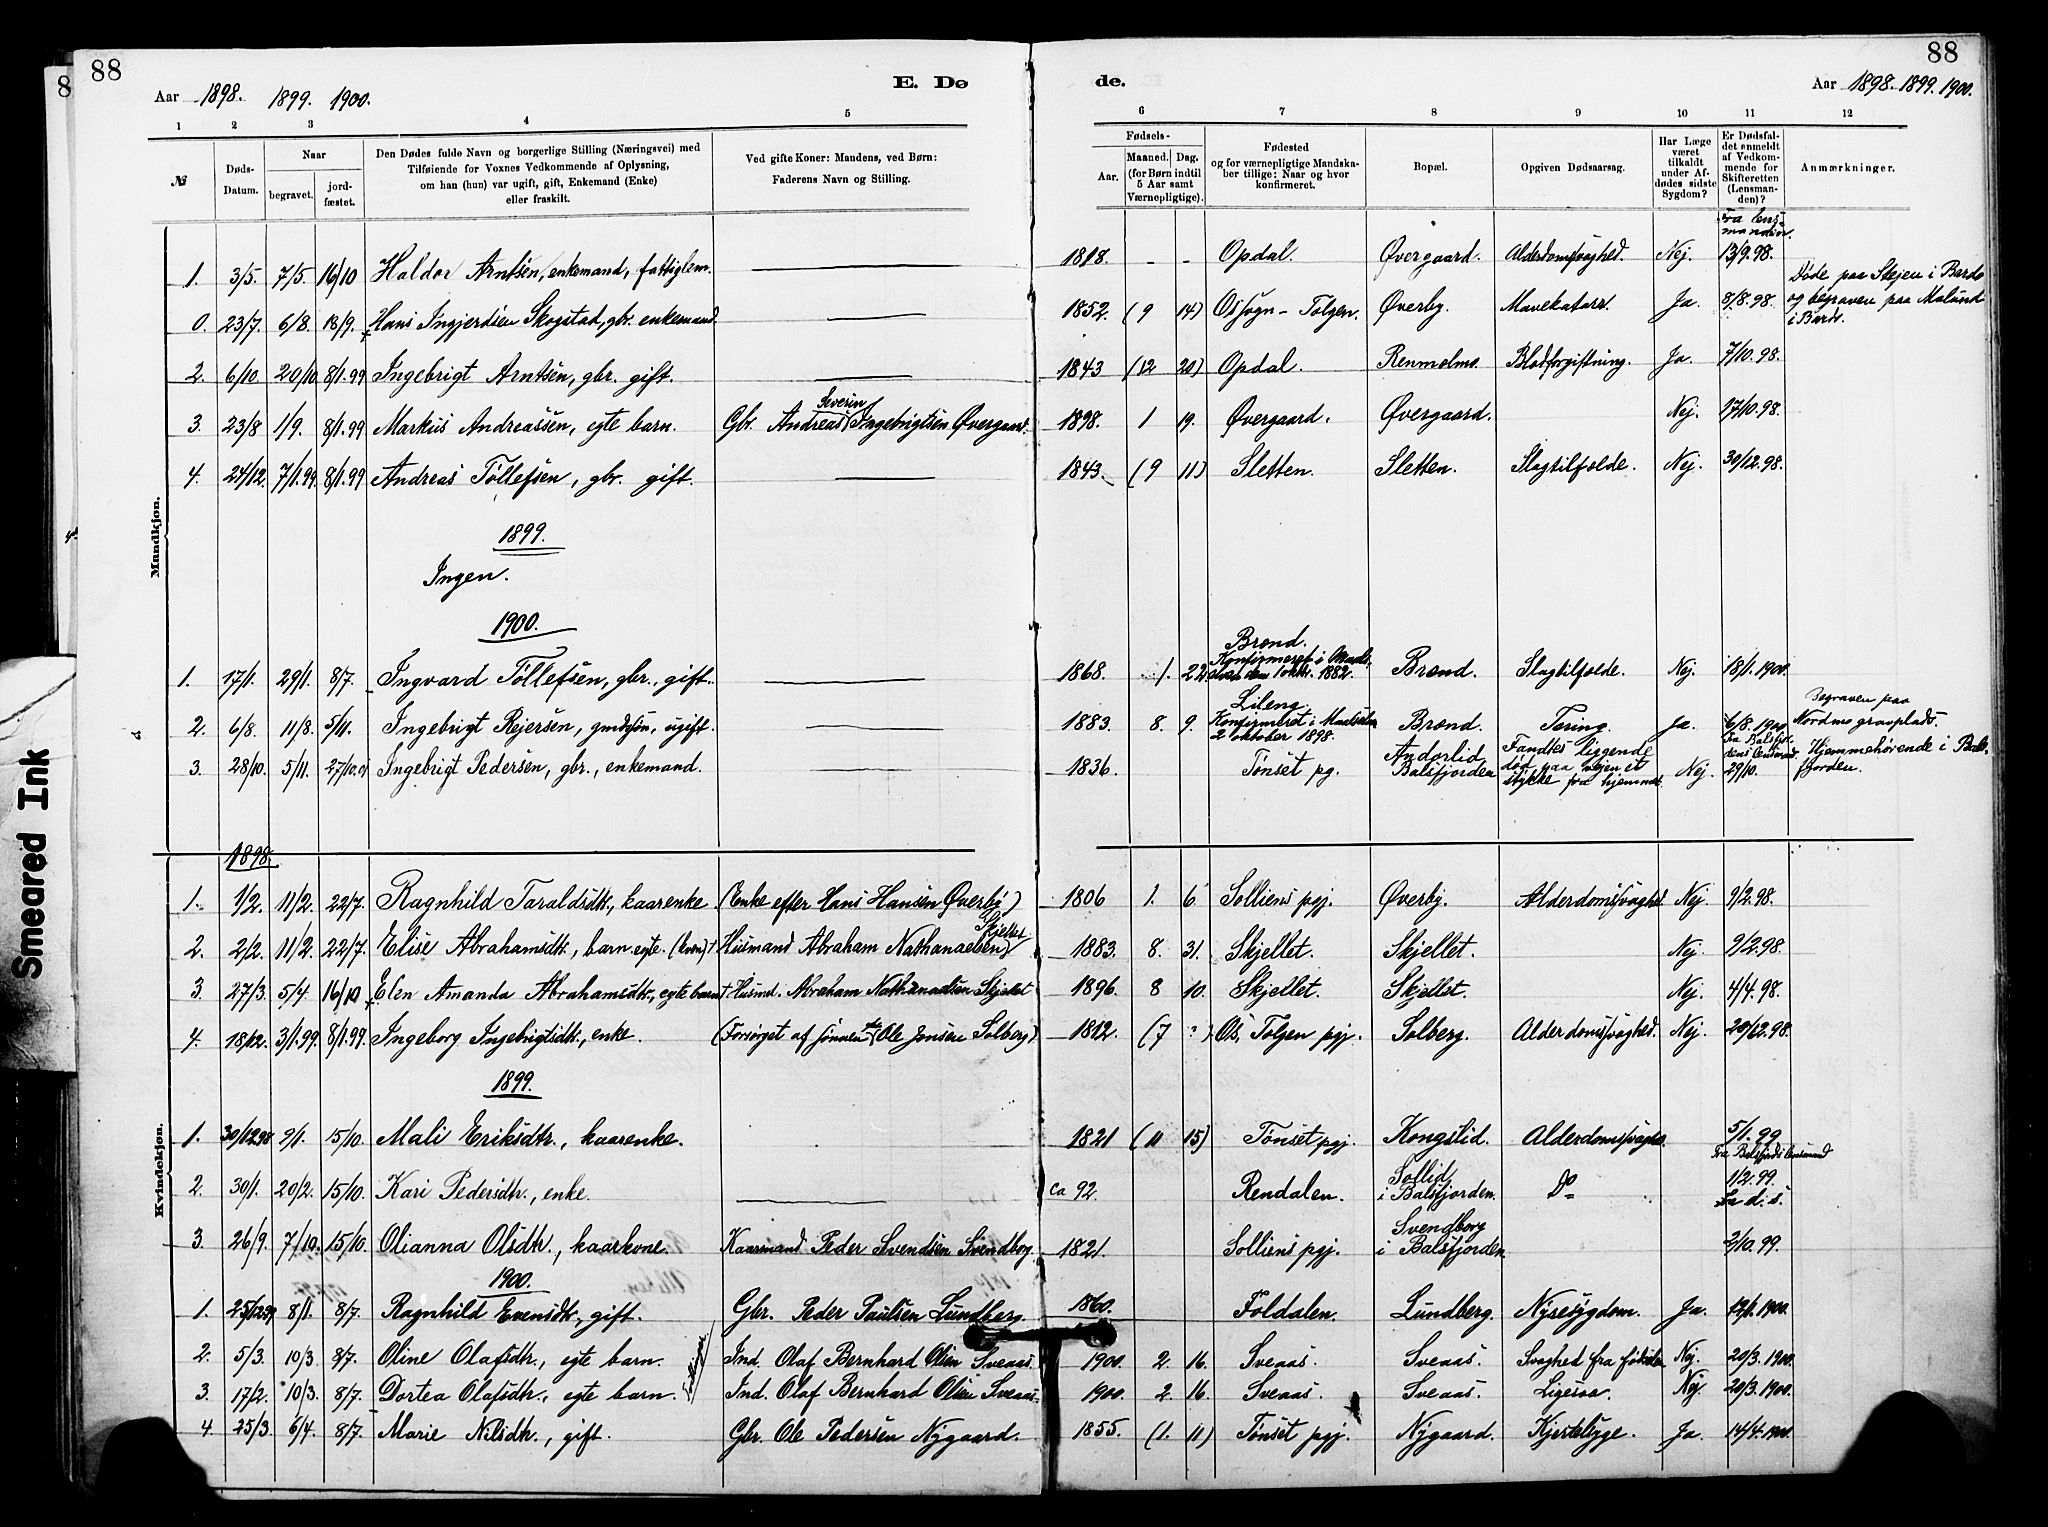 88
88
8
Aar 1898. 1899. 1900.
E. Dø
de.
Aar 1898. 1899. 1900.
1 2 3 4 5 6 7 8 9 10 11 12
№
Døds-Datum.
Naar
begravet.
jord-fæstet.
Den Dødes fulde Navn og borgerlige Stilling (Næringsvei) med
Tilføiende for Voxnes Vedkommende af Oplysning,
om han (hun) var ugift, gift, Enkemand (Enke)
eller fraskilt.
Ved gifte Koner: Mandens, ved Børn:
Faderens Navn og Stilling.
Fødsels-
Aar.
Maaned. Dag.
(for Børn indtil
5 Aar samt
Værnepligtige).
Fødested
og for værnepligtige Mandska-
ber tillige: Naar og hvor
konfirmeret.
Bopæl.
Opgiven Dødsaarsag.
Har Læge
været
tilkaldt
under Af-
dødes sidste
Sygdom?
Er Dødsfal-
det anmeldt
af Vedkom-
mende for
Skifteretten
(Lensman-
den)?
Anmærkninger.
Mandkjøn.
1. 3/5. 7/5. 16/10 Haldor Arntsen, enkemand, fattiglem. 1818. - - Opdal. Øvergaard. Alderdomssvaghed. Nej. 13/9.98.
0. 23/7. 6/8. 18/9. Hans Ingjerdsen Skogstad, gbr. enkemand. 1852. (9 14) Os sogn - Tolgen. Øverby. Mavekatarr. Ja. 8/8.98. Døde paa Slejen i Bardo
og begraven paa Molund
i Bardo.
2. 6/10. 20/10. 8/1.99 Ingebrigt Arntsen, gbr. gift. 1843 (12 20) Opdal. Renmolmo. Blodforgiftning. Ja. 7/10.98.
3. 23/8 1/9. 8/1.99 Markus Andreassen, egte barn. Gbr. Andreas Severin Ingebrigtsen Øvergaard. 1898. 1 19. Øvergaard. Øvergaard. Nej. 17/10.98.
4. 24/12. 7/1.99. 8/1.99 Andreas Tøllefsen, gbr. gift. 1843. (9 11) Sletten. Sletten. Slagtilfælde. Nej. 30/12.98.
1899.
Ingen.
1900.
1. 17/1. 29/1. 8/7. Ingvard Tøllefsen, gbr., gift. 1868. 1. 22. Brond.
Konfirmeret i Maals-
elven den 1 oktbr. 1882. Brond. Slagtilfælde. Nej. 18/1.1900.
2. 6/8. 11/8. 5/11. Ingebrigt Rejersen, grudsøn, ugift. 1883. 8. 9. Lileng
Konfirmeret i Maalselv
2 oktober 1898. Brond. Tæring. Ja. 6/8.1900 Begraven paa
Nordmo gravplads.
3. 28/10. 5/11. 27/10.01 Ingebrigt Pedersen, gbr., enkemand. 1836. Tønset pg. Andorlid
Balsfjorden Fandtes liggende
død paa vejen et
stykke fra hjemmet. Nej. 29/10. Hjemmehørende i Bals-
fjorden.
Kvindekjøn.
1898.
1. 1/2. 11/2. 22/7. Ragnhild Taraldsdtr., kaarenke. (Enke efter Hans Hansen Øverby) 1806 1. 6. Solliens pgj. Øverby. Alderdomssvaghed. Nej. 9/2.98.
2. 2/2. 11/2. 22/7. Elise Abrahamsdtr., barn egte. (kvæn) Husmand Abraham Nathanaelsen Skjellet 1883. 8. 31. Skjellet. Skjellet. Nej 9/2.98.
3. 27/3. 5/4. 16/10 Elen Amanda Abrahamsdtr., egte barn Husmd. Abraham Nathanaelsen Skjellet 1896. 8 10. Skjellet. Skjellet. Nej. 4/4.98.
4. 18/12. 3/1.99. 8/1.99. Ingeborg Ingebrigtsdtr., enke. (Forsørget af sønnen Ole Jonsen Solberg) 1812. (7 ?) Os, Tolgen pgj. Solberg. Alderdomssvaghed. Nej. 20/12.98.
1899.
1. 30/12.98 9/1. 15/10. Mali Eriksdtr., kaarenke. 1821 (11 15) Tønset pgj. Kongslid. Alderdomssvaghed. 5/1.99.
2. 30/1. 20/2. 15/10. Kari Pedersdtr., enke. ca 92. Rendalen. Sollid
i Balsfjorden. Do Fra Balsfjords lensmand
1/2.99.
3. 26/9. 7/10. 15/10. Olianna Olsdtr., kaarkone. Kaarmand Peder Svendsen Svendborg. 1821. Solliens pgj. Svendborg
i Balsfjorden. Fra d. s.
3/10.99.
1900.
1. 25/12.99 8/1. 8/7. Ragnhild Evensdtr., gift. Gbr. Peder Paulsen Lundberg. 1860. Foldalen. Lundberg. Nyresygdom. Ja. 12/1.1900.
2. 5/3. 10/3. 8/7. Oline Olafsdtr., egte barn. Tvillinger Ind. Olaf Bernhard Olsen Sveaas. 1900. 2. 16. Sveaas. Sveaas. Svaghed fra fødselen Nej. 20/3.1900.
3. 17/2. 10/3. 8/7. Dortea Olafsdtr., egte barn. Ind. Olaf Bernhard Olsen Sveaas. 1900. 2. 16. Sveaas. Sveaas. Ligesaa. Nej. 20/3.1900.
4. 25/3. 6/4. 8/7. Marie Nilsdtr., gift. Gbr. Ole Pedersen Nygaard. 1855. (1. 11) Tønset pgj. Nygaard. Kjertelsyge. Ja. 14/4.1900.
Smeared Ink